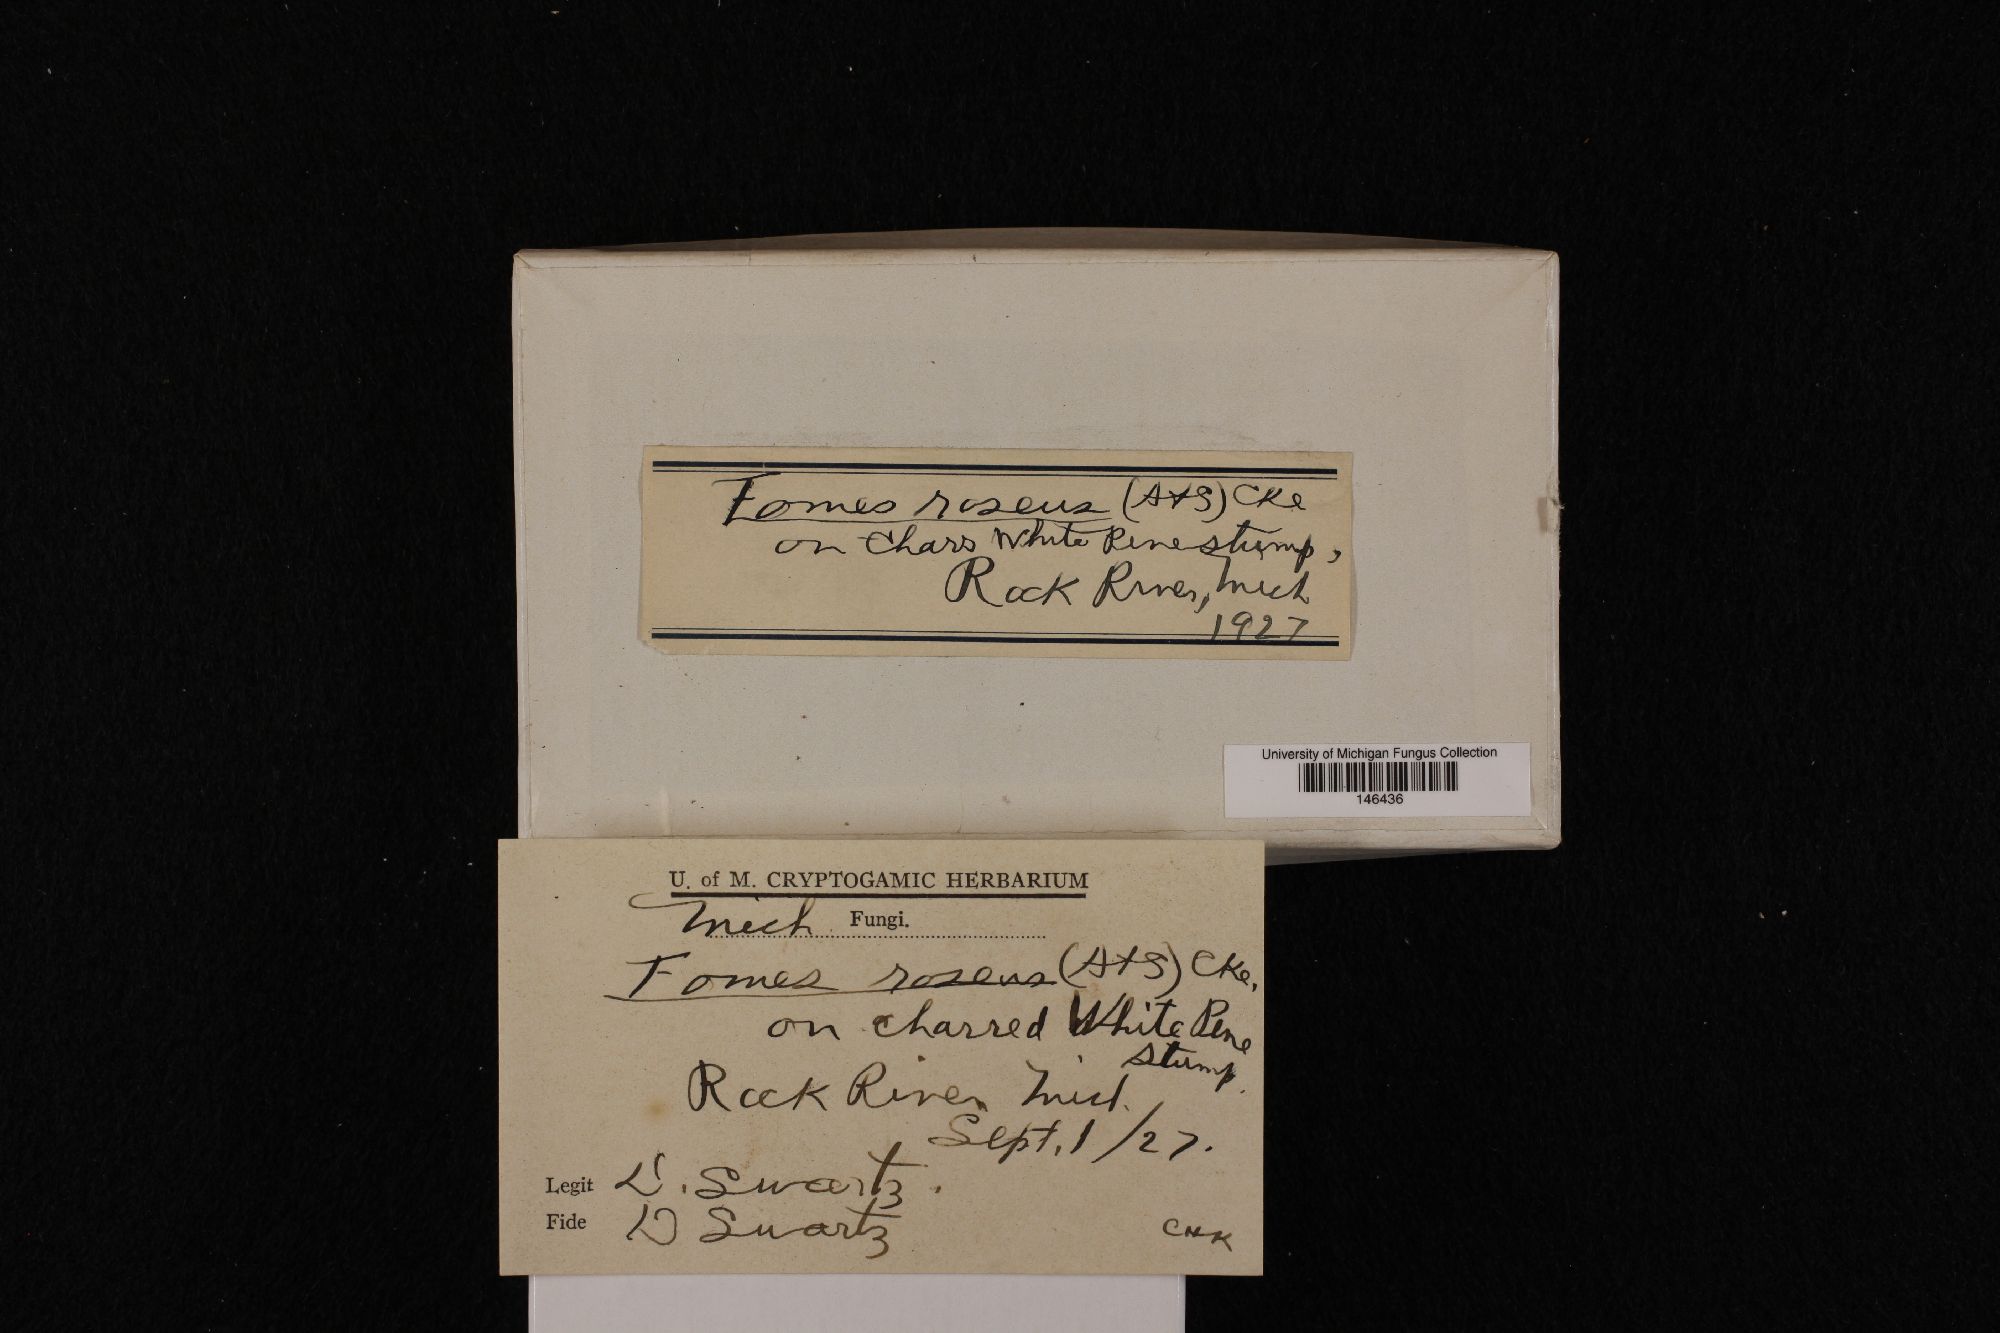 Fomes roseus (A+S) CKe
on Chars White Pine stump,
Rock River, Mich
1927
University of Michigan Fungus Collection
146436
U. of M. CRYPTOGAMIC HERBARIUM
Mich Fungi.
Fomes roseus (A+S) CKe,
on charred White Pine
stump.
Rock River Mich.
Sept. 1/27.
Legit D. Swartz.
Fide D Swartz
CHK